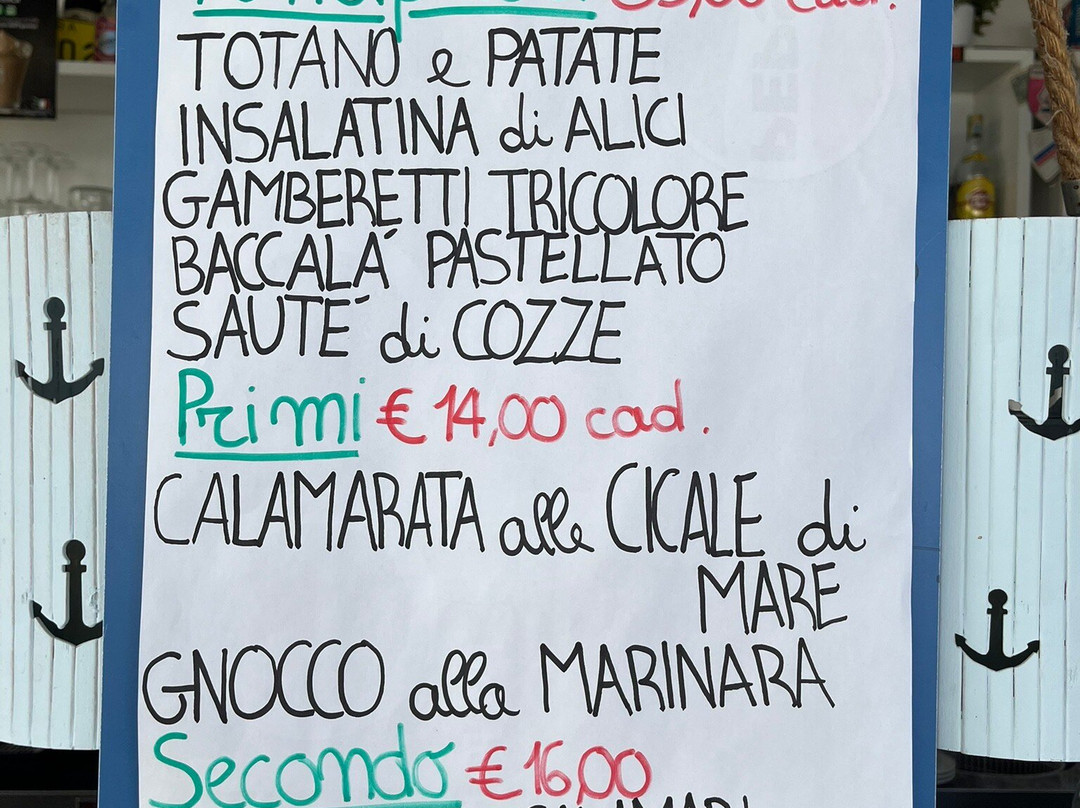 TOTANO e PATATE
INSALATINA di ALICI
GAMBERETTI TRICOLORE
BACCALÁ PASTELLATO
SAUTÉ di COZZE
Primi € 14,00 cad.
CALAMARATA alle CICALE di
MARE
GNOCCO alla MARINARA
Secondo €16,00